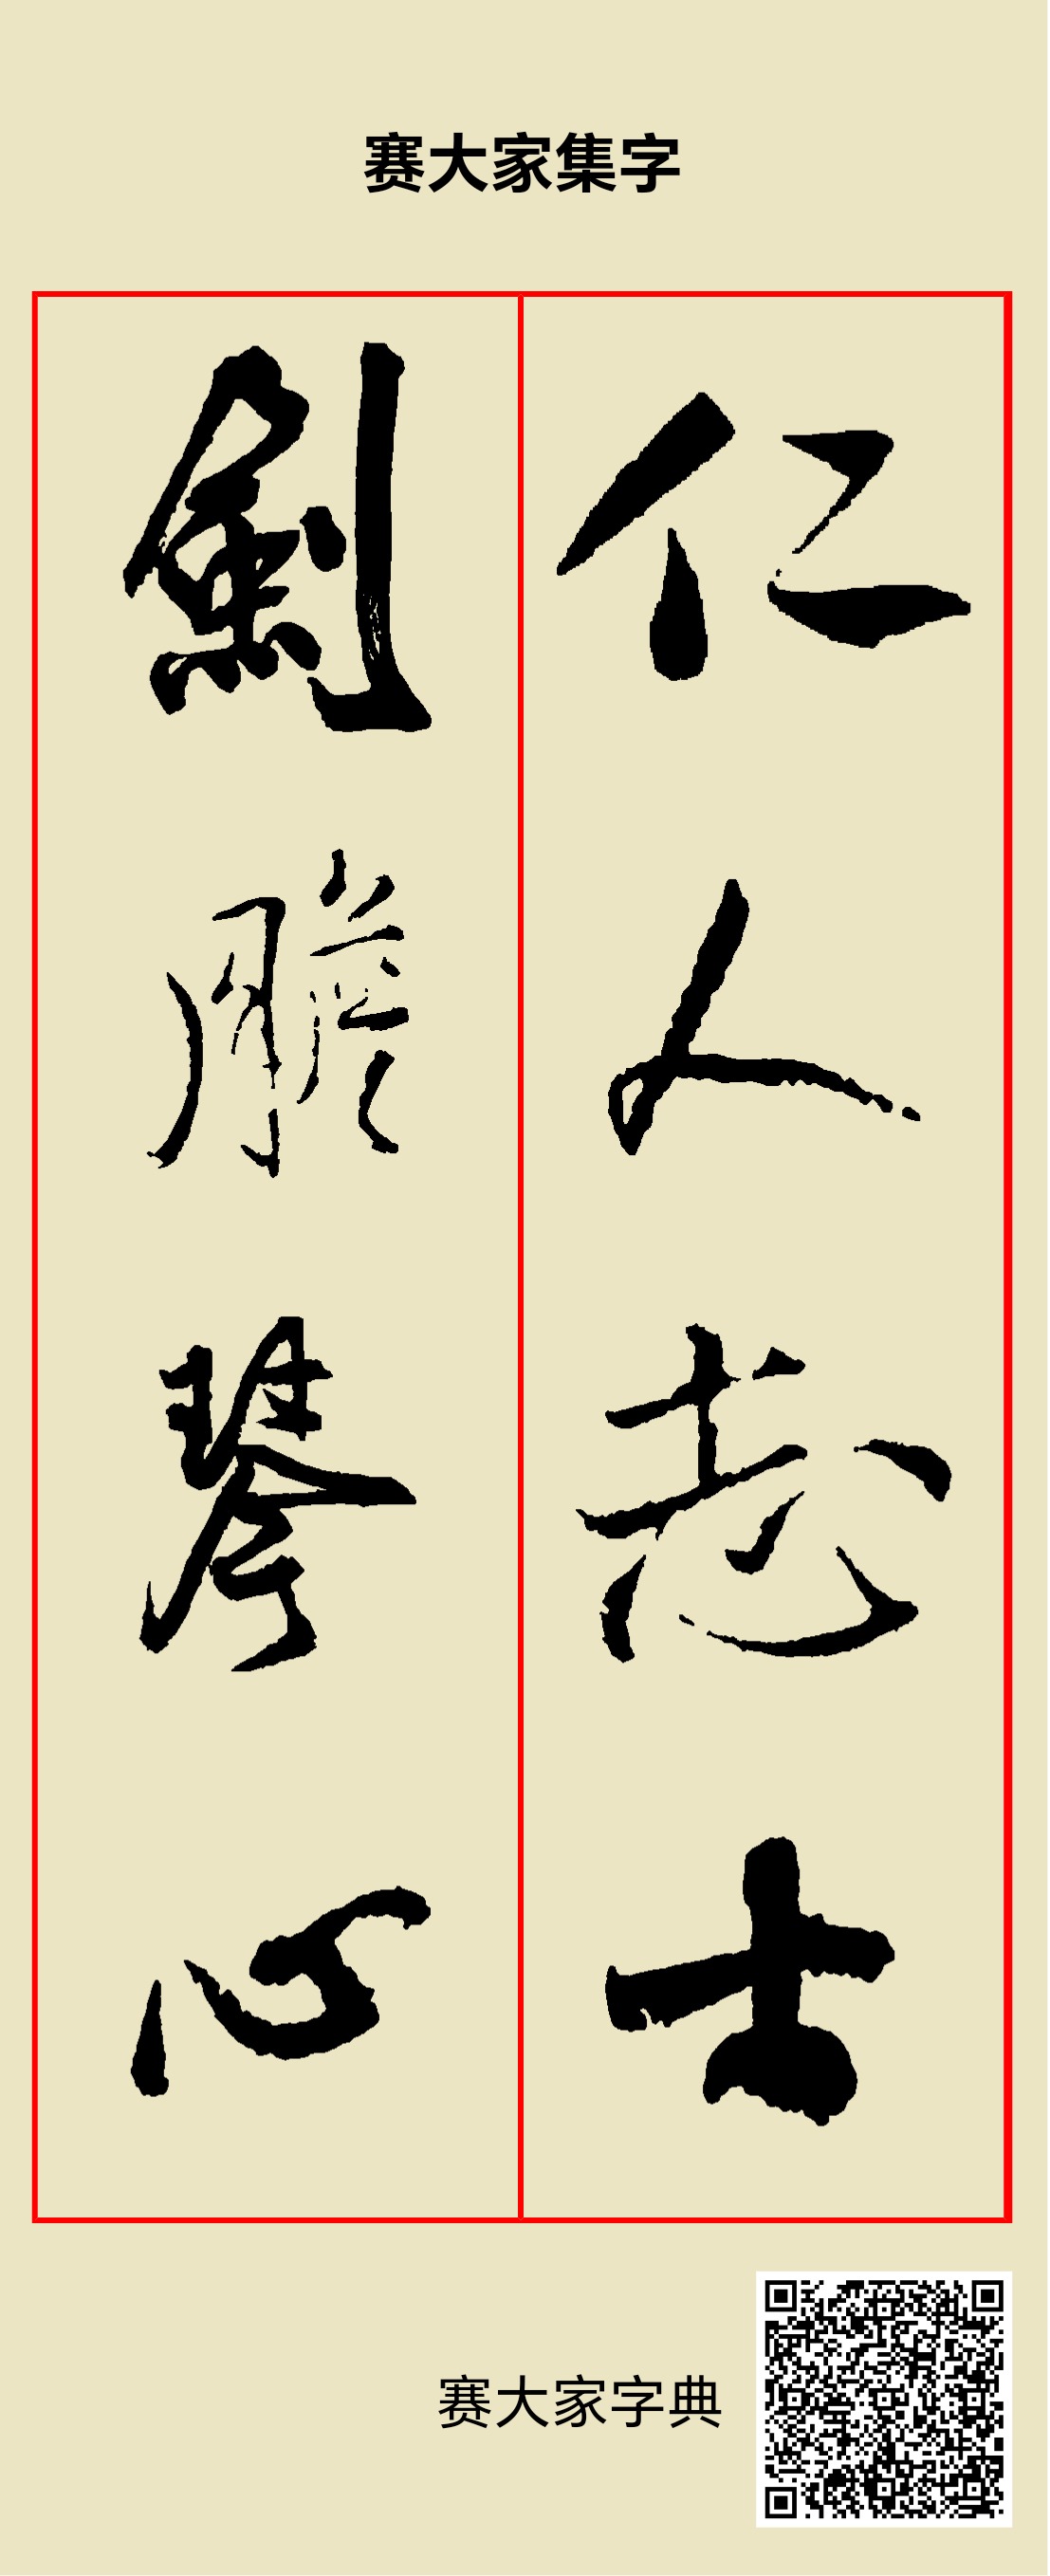 赛大家集字
仁人志士
剑胆琴心
赛大家字典